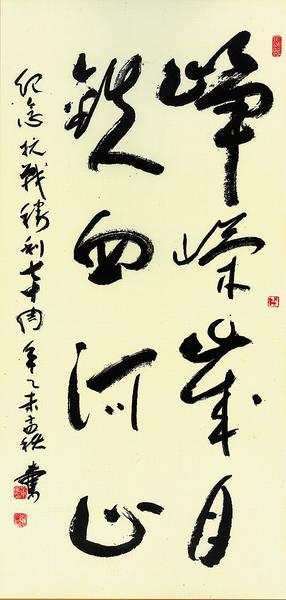 峥嵘岁月
鉄血河山
纪念抗战胜利七十周年乙未孟秋